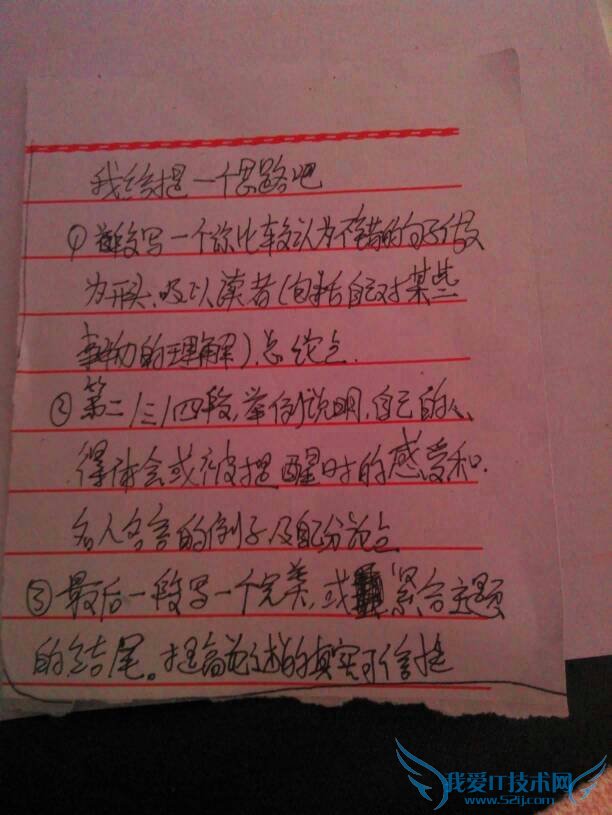 我给提一个思路吧
①首段写一个你比较认为不错的句子做
为开头,吸引读者(包括自己对某些
事物的理解),总论点.
②第二/三/四段,举例说明,自己的心
得体会或被提醒时的感受和.
名人名言的例子及配分论点
③最后一段写一个完美,或紧合主题
的结尾。提高论述的真实可信性
我爱IT技术网
www.52ij.com